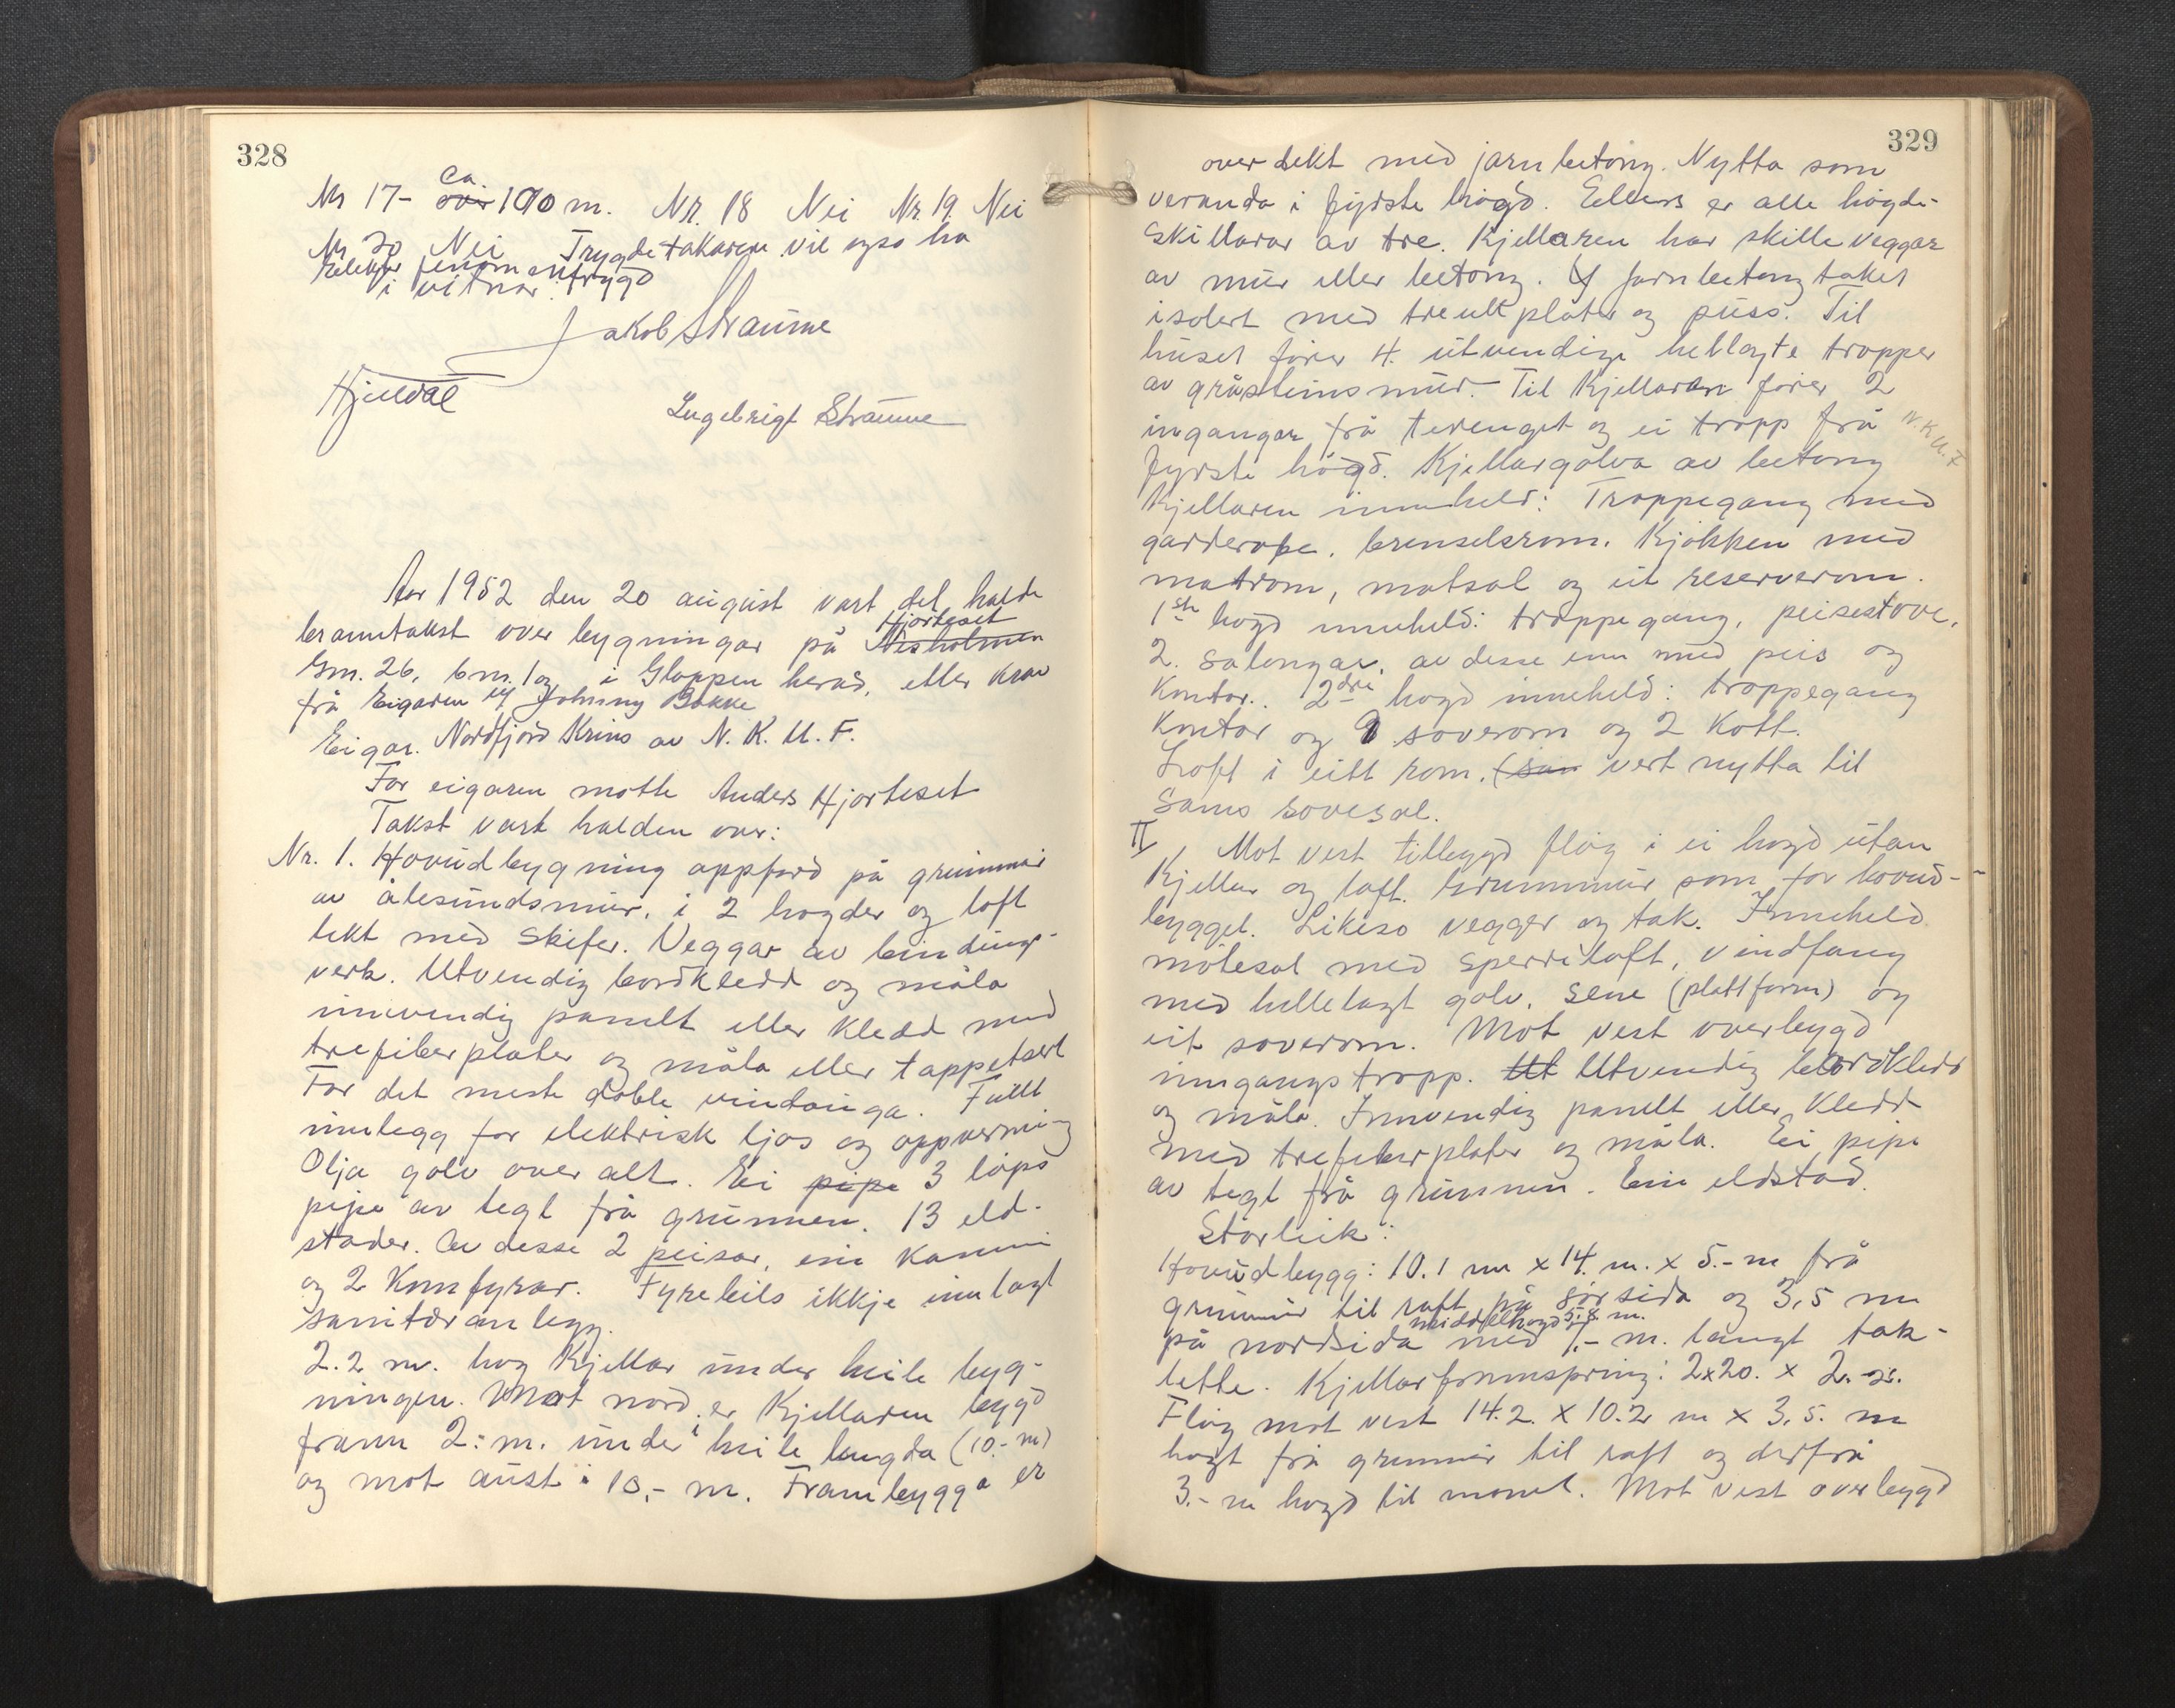 328
ca.
Nr 17- over 100 m. Nr. 18 Nei Nr. 19. Nei
Nr 20 Nei Trygdetakaren vil også ha
elektr fenomentrygd
i vitnar:
Jakob Straume
Hjeldal
Ingebrigt Straume
Aar 1952 den 20 august vart det halde
Hjorteset
branntakst over bygningar på Nesholmen
Gm. 26, bm. 1 og i Gloppen herad, etter krav
frå Eigaren ej Johnny Bakke
Eigar. Nordfjord Krins av N. K. U. F.
For eigaren møtte Anders Hjorteset
Takst vart halden over:
Nr. 1. Hovudbygning oppførd på grunnmur
av ålesundsmur, i 2 høgder og loft
tekt med skifer. Veggar av bindings-
verk. Utvendig bordkledd og måla
innvendig panelt eller kledd med
trefiberplater og måla eller tappetsert
For det meste doble vindauga. Fullt
innlegg for elektrisk ljos og oppverming
Olja golv over alt. Ei pipe 3 løps
pipe av tegl frå grunnen. 13 eld-
stader. Av desse 2 peisar, ein kamin
og 2 Komfyrar. Fyrebils ikkje innlagt
sanitæranlegg.
2.2 m. høg Kjellar under heile byg-
ningen. Mot nord er Kjellaren bygd
fram 2.- m. under i heile lengda (10.- m)
og mot aust i 10,- m. Frambygga er
329
overdekt med jarnbetong. Nytta som
veranda i fyrste høgd. Ellers er alle høgde-
skillarar av tre. Kjellaren har skilleveggar
av mur eller betong. Jarnbetongtaket
isolert med treullplater og puss. Til
huset fører 4. utvendige hellagte tropper
av gråsteinsmur. Til Kjellaren fører 2
ingangar frå terenget og ei tropp frå
N.K.U.F
fyrste høgd. Kjellargolva av betong
Kjellaren inneheld: Troppegang med
garderobe, brenselsrom. Kjøkken med
matrom, matsal og eit reserverom.
1ste høgd inneheld: troppegang, peisestove,
2. salongar, av desse ein med peis og
Kontor. 2dre høgd inneheld: troppegang
Kontor og 9 soverom og 2 Kott.
Loft i eitt rom. (som vert nytta til
sams sovesal.
II Mot vest tilbygd fløy i ei høgd utan
Kjellar og loft. Grunnmur som for hovud-
bygget. Likeso vegger og tak. Inneheld
møtesal med sperreloft, vindfang
med hellelagt golv, sene (plattform) og
eit soverom. Mot vest overbygd
inngangstropp. Ut Utvendig bordkledd
og måla. Innvendig panelt eller kledd
med trefiberplater og måla. Ei pipe
av tegl frå grunnen. Ein eldstad.
Storleik:
Hovudbygg: 10.1 m x 14. m. x 5.- m frå
grunnmur til raft på sørsida og 3,5 m
middelhøgd 5.8 m.
på nordsida med 7.- m. langt tak-
lette. Kjellarframspring: 2x20. x 2.-
Fløy mot vest 14.2. x 10.2 m x 3.5. m
høgt frå grunnmur til raft og derfrå
3.- m høgd til mønet. Mot vest overbygd